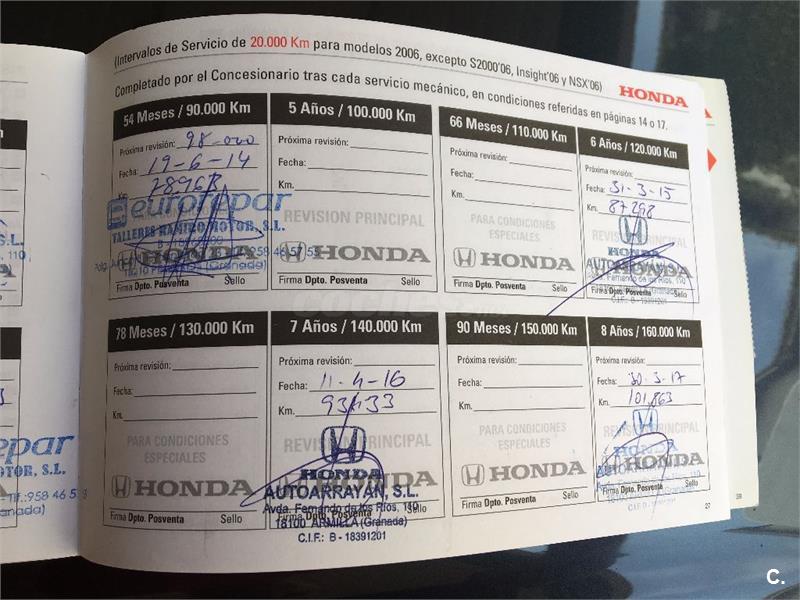 (Intervalos de Servicio de 20.000 Km para modelos 2006, excepto S2000'06, Insight'06 y NSX'06)
Completado por el Concesionario tras cada servicio mecánico, en condiciones referidas en páginas 14 o 17.
HONDA
54 Meses / 90.000 Km
Próxima revisión: 98-000
Fecha: 19-6-14
Km.
eurorepar
TALLERES RAMIRO MOTOR, S.L.
HONDA
(Granada)
Firma Dpto. Posventa Sello
5 Años / 100.000 Km
Próxima revisión:
Fecha:
Km.
REVISIÓN PRINCIPAL
HONDA
Firma Dpto. Posventa Sello
66 Meses / 110.000 Km
Próxima revisión:
Fecha:
Km.
PARA CONDICIONES
ESPECIALES
HONDA
Firma Dpto. Posventa Sello
6 Años / 120.000 Km
Próxima revisión:
Fecha: 31-3-15
Km. 87298
HONDA
HONDA
Fernando de los Ríos, 110
C.I.F.: B - 18391201
Firma Dpto. Posventa Sello
78 Meses / 130.000 Km
Próxima revisión:
Fecha:
Km.
PARA CONDICIONES
ESPECIALES
HONDA
Firma Dpto. Posventa Sello
7 Años / 140.000 Km
Próxima revisión:
Fecha: 11-4-16
Km. 93433
REVISIÓN PRINCIPAL
HONDA
HONDA
AUTOARRAYAN, S.L.
Avda. Fernando de los Ríos, 110
18100 ARMILLA (Granada)
C.I.F.: B - 18391201
Firma Dpto. Posventa Sello
90 Meses / 150.000 Km
Próxima revisión:
Fecha:
Km.
PARA CONDICIONES
ESPECIALES
HONDA
Firma Dpto. Posventa Sello
8 Años / 160.000 Km
Próxima revisión:
Fecha: 30-3-17
Km. 101.863
HONDA
Firma Dpto. Posventa Sello
27
epar
OTOR, S.L.
C.